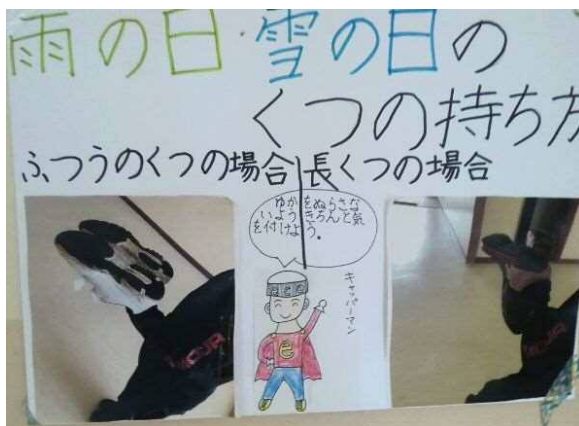 雨の日・雪の日の
くつの持ち方
ふつうのくつの場合
長くつの場合
ゆかをぬらさな
いようきちんと気
を付けよう。
キャッパーマン
e